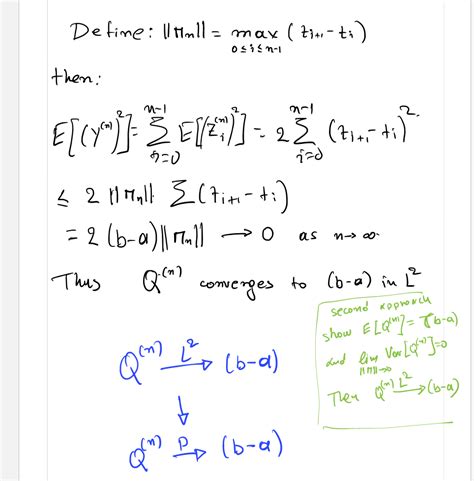 Define: ||Πn|| = max (ti+1 - ti)
0≤i≤n-1
then:
E[(Y^(n))^2] = Σ_{i=0}^{n-1} E[(Z_i^(n))^2] = 2 Σ_{i=0}^{n-1} (ti+1 - ti)^2.
≤ 2 ||Πn|| Σ (ti+1 - ti)
= 2 (b-a) ||Πn|| → 0 as n→∞.
Thus Q^(n) converges to (b-a) in L^2
second approach
show E[Q^(n)] = (b-a)
and lim Var[Q^(n)] = 0
||Π||→0
Then Q^(n) L^2→ (b-a)
Q^(n) L^2→ (b-a)
↓
Q^(n) P→ (b-a)